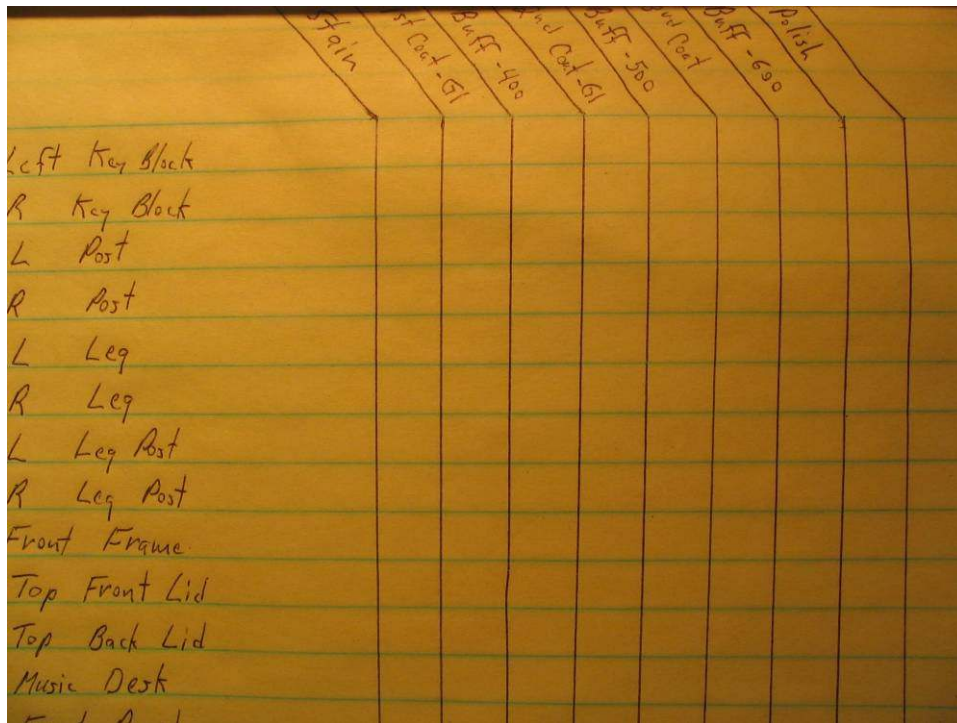 Stain
1st Coat-Gl
Buff -400
2nd Coat-Gl
Buff -500
3rd Coat
Buff -600
Polish
Left Key Block
R Key Block
L Post
R Post
L Leg
R Leg
L Leg Post
R Leg Post
Front Frame
Top Front Lid
Top Back Lid
Music Desk